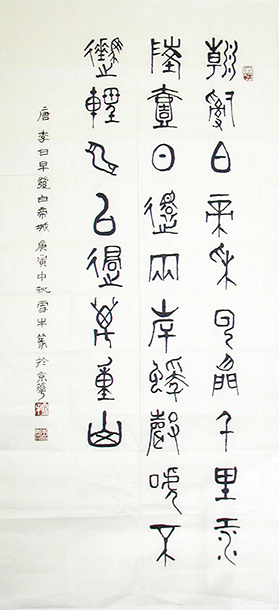 朝辭白帝采云間千里江
陵壹日還兩岸猨聲啼不
住輕舟已過萬重山
唐 李白早發白帝城 庚寅中秋雪牛篆於京華